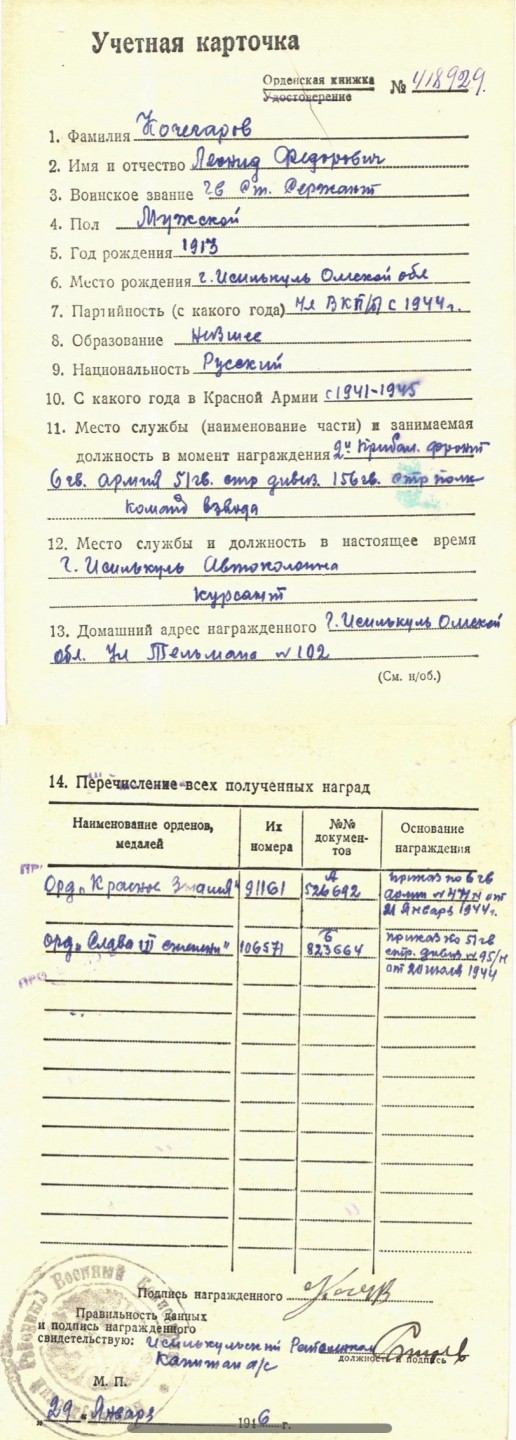 Учетная карточка
Орденская книжка
Удостоверение
№ 418929.
1. Фамилия Кочегаров
2. Имя и отчество Леонид Федорович
3. Воинское звание Гв Ст. Сержант
4. Пол Мужской
5. Год рождения 1913
6. Место рождения г. Исилькуль Омской обл
7. Партийность (с какого года) Чл ВКП/б с 1944 г.
8. Образование Низшее
9. Национальность Русский
10. С какого года в Красной Армии с 1941-1945
11. Место службы (наименование части) и занимаемая
должность в момент награждения 2й Прибал. фронт
6 гв. армия 51 гв. стр дивиз. 156 гв. стр полк
команд взвода
12. Место службы и должность в настоящее время
Г. Исилькуль Автоколонна
Курсант
13. Домашний адрес награжденного Г. Исилькуль Омской
обл. Ул Тельмана № 102
(См. н/об.)
14. Перечисление всех полученных наград
Наименование орденов, медалей
Их номера
№№ документов
Основание награждения
Орд „Красное Знамя“ 91161 А 526692 приказ по 6 гв
армии
21 Января 1944 г.
орд „Слава III степени“ 106571 Б 823664 приказ по 51 гв
стр. дивиз № 95/н
от 20 июля 1944
Подпись награжденного
Правильность данных
и подпись награжденного
свидетельствую: Исилькульский
Капитан а/с
должность и подпись
М. П.
„29“ Января 1946 г.